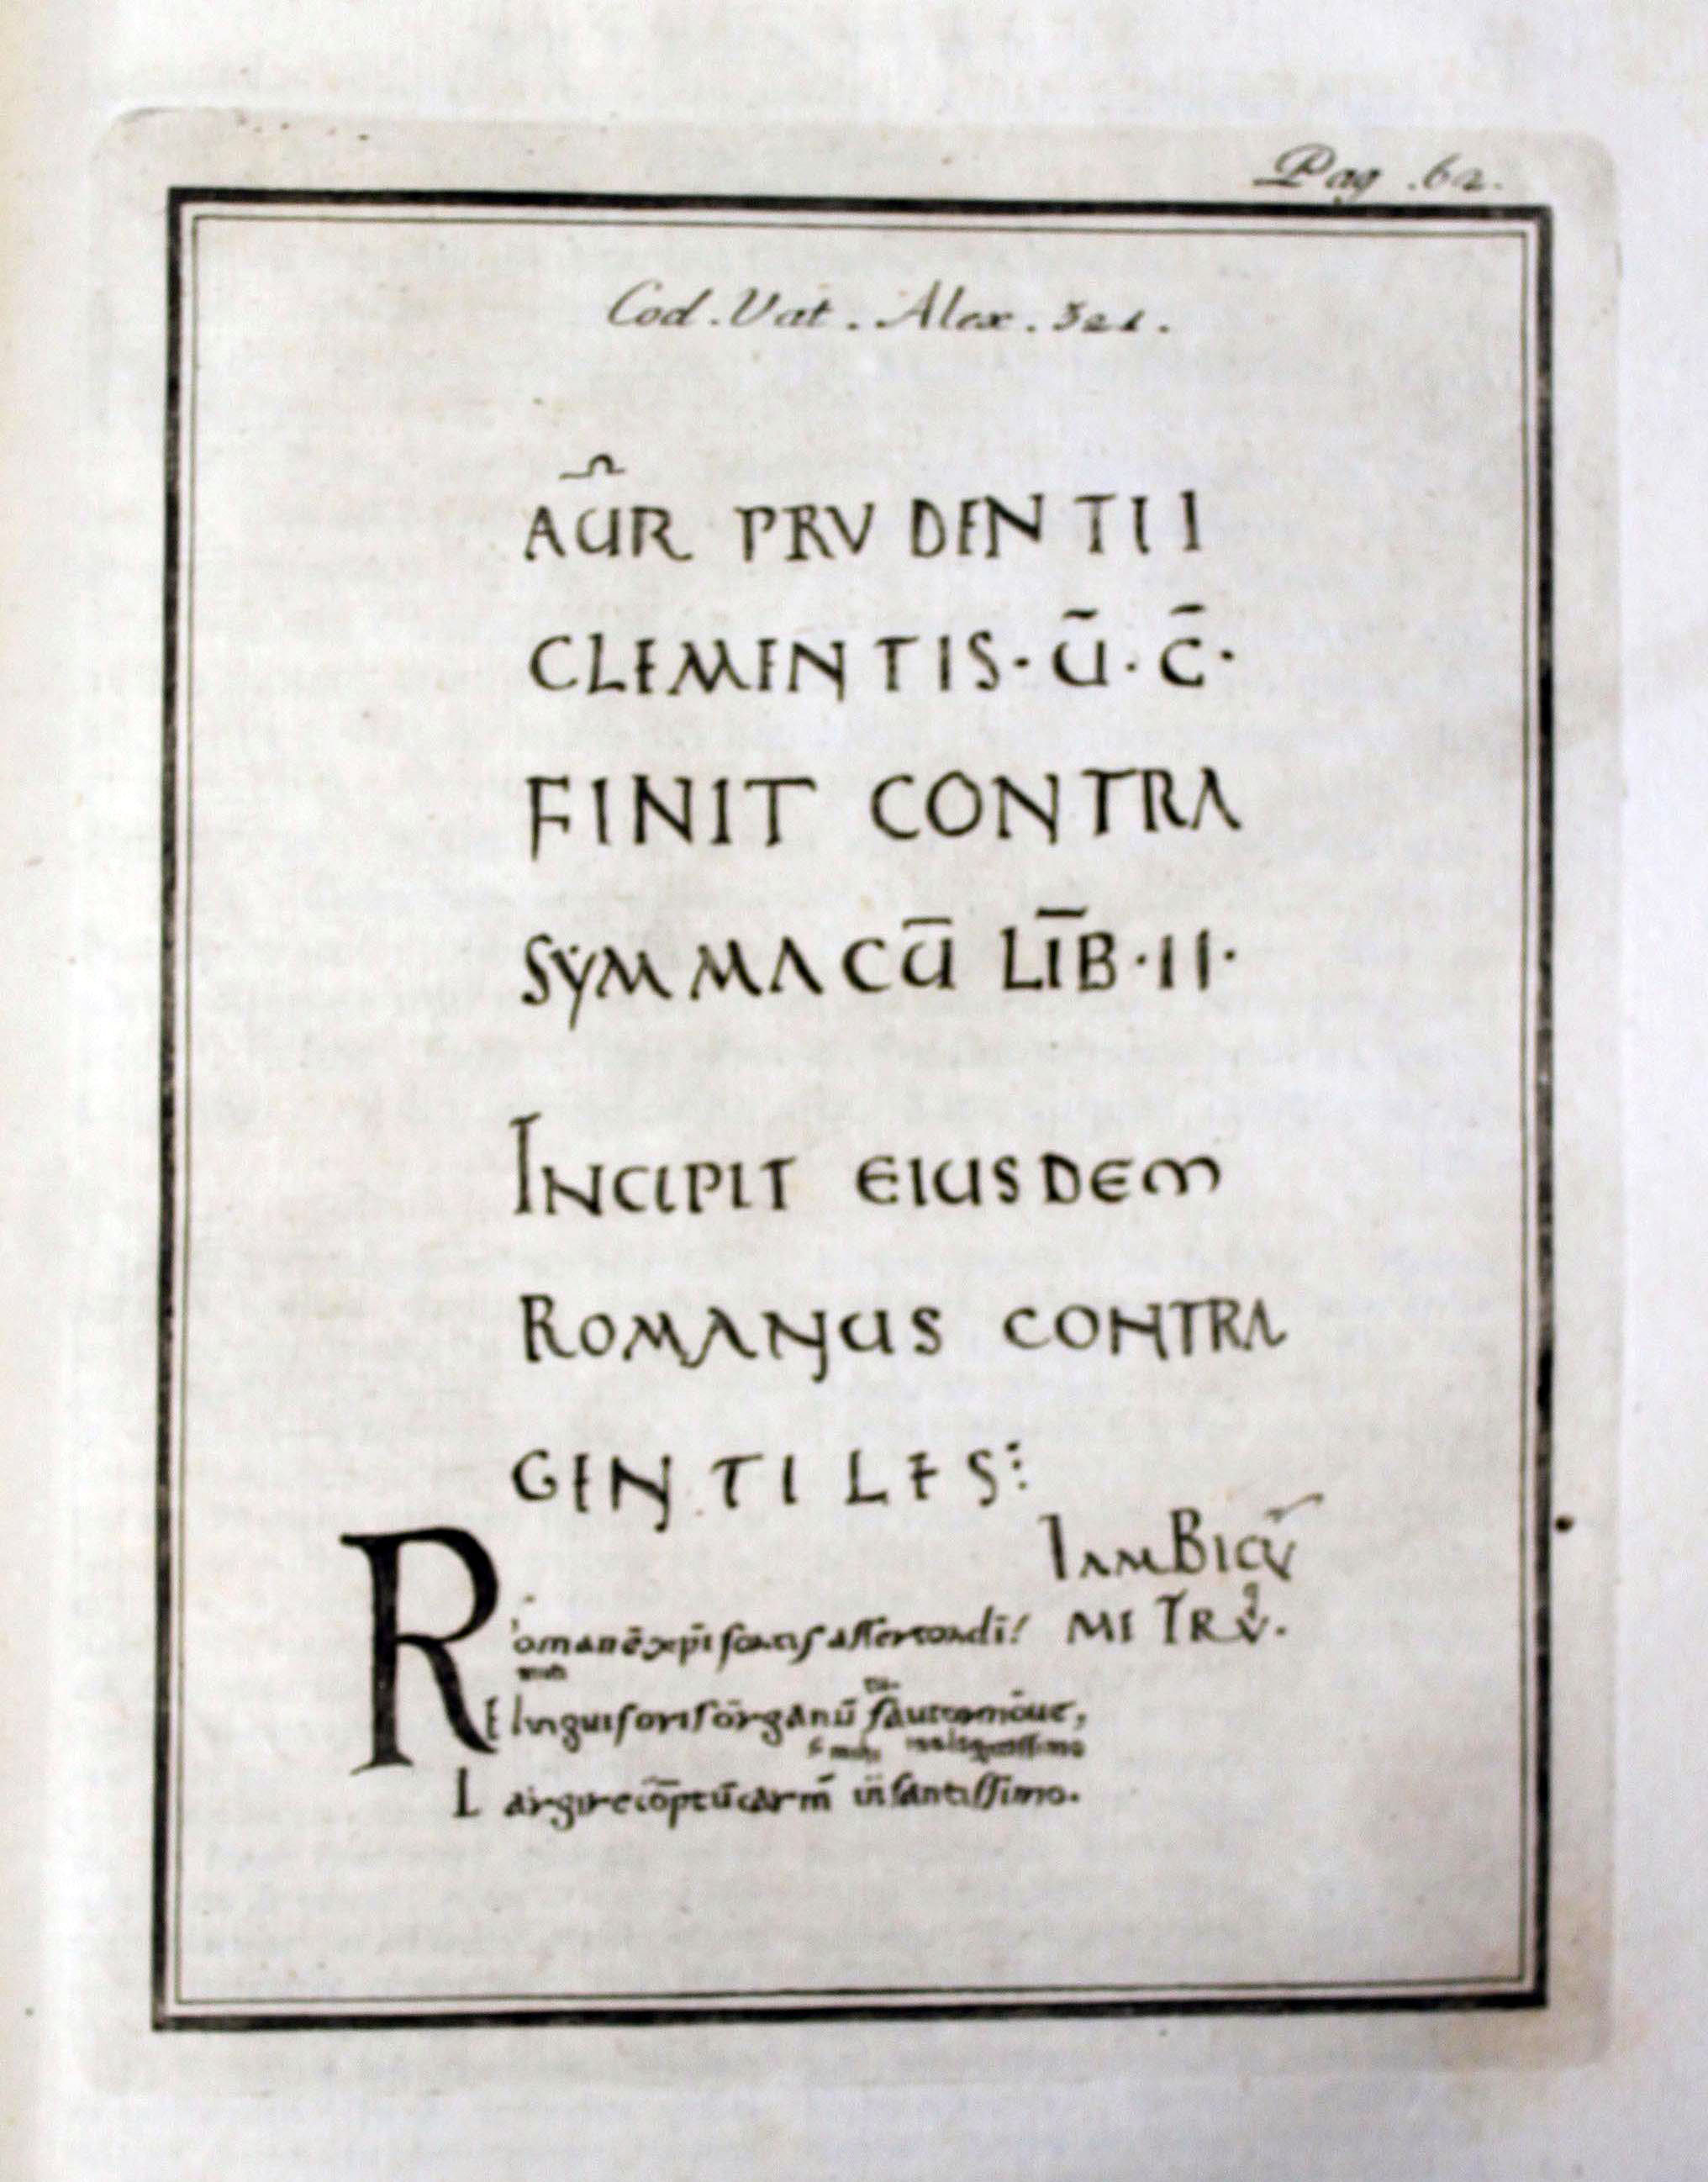 Pag. 62.
Cod. Vat. Alex. 321.
AŪR PRVDENTII
CLEMENTIS · Ū · C̄ ·
FINIT CONTRA
SYMMACŪ LĪB · II ·
INCIPIT EIUSDEM
ROMANUS CONTRA
GENTILES
IAMBICV̄
Romane xp̄i fortis assertor dī! METRV̄.
E linguis oris organū fautor moue,
Largire cōptū carm̄ infantissimo.